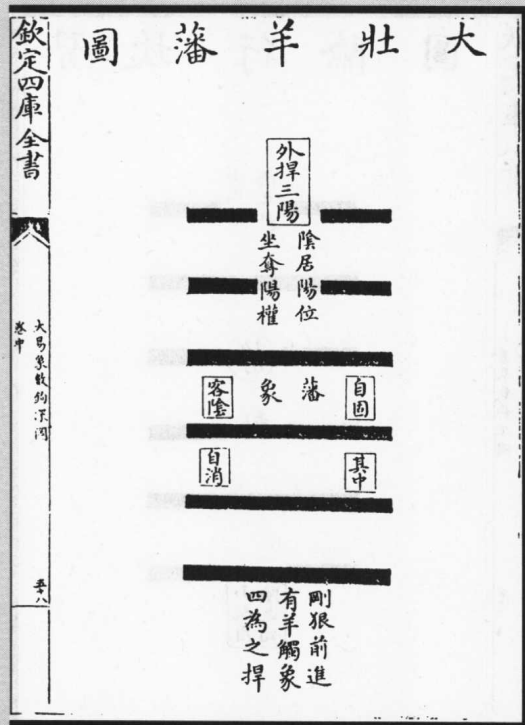 大壯羊藩圖
外捍三陽
陰居陽位
坐奪陽權
自固
藩
象
客陰
其中
自消
剛狠前進
有羊觸象
四為之捍
欽定四庫全書
大易象數鈎深圖
卷中
五十八